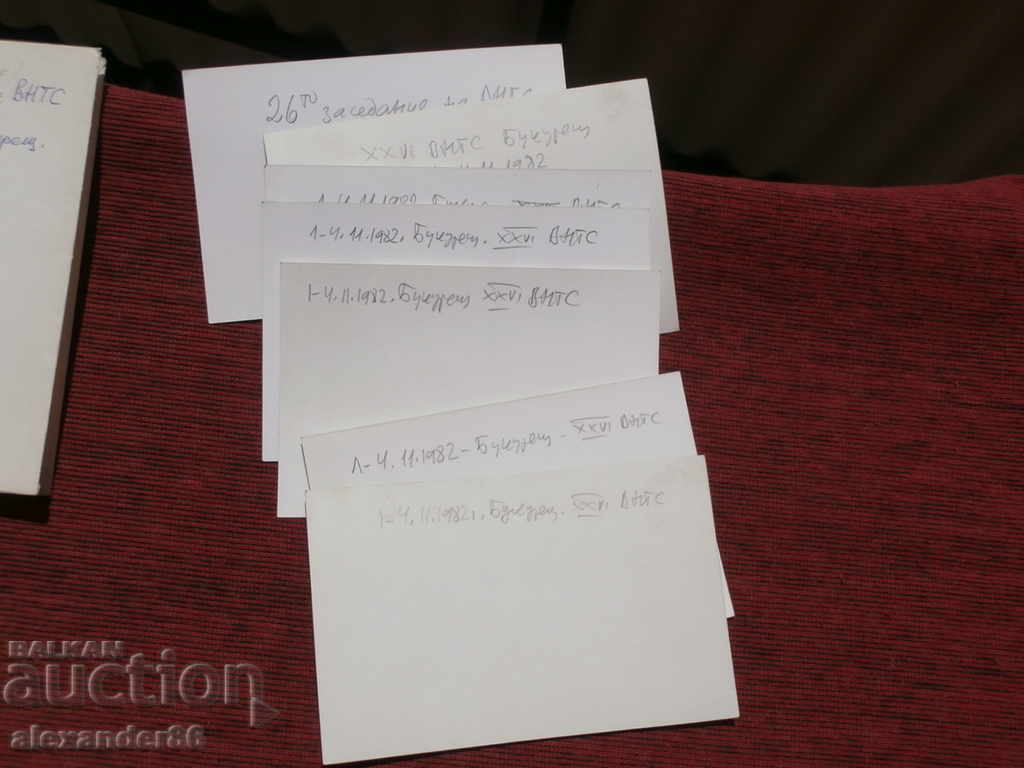 ВНТС
26ТО заседание на ВНТС
XXVI ВНТС Букурещ
11.1982
1-4.11.1982. Букурещ. XXVI ВНТС
1-4.11.1982. Букурещ XXVI ВНТС
1-4.11.1982 - Букурещ - XXVI ВНТС
1-4.11.1982г. Букурещ. XXVI ВНТС
BALKAN
auction
alexander86